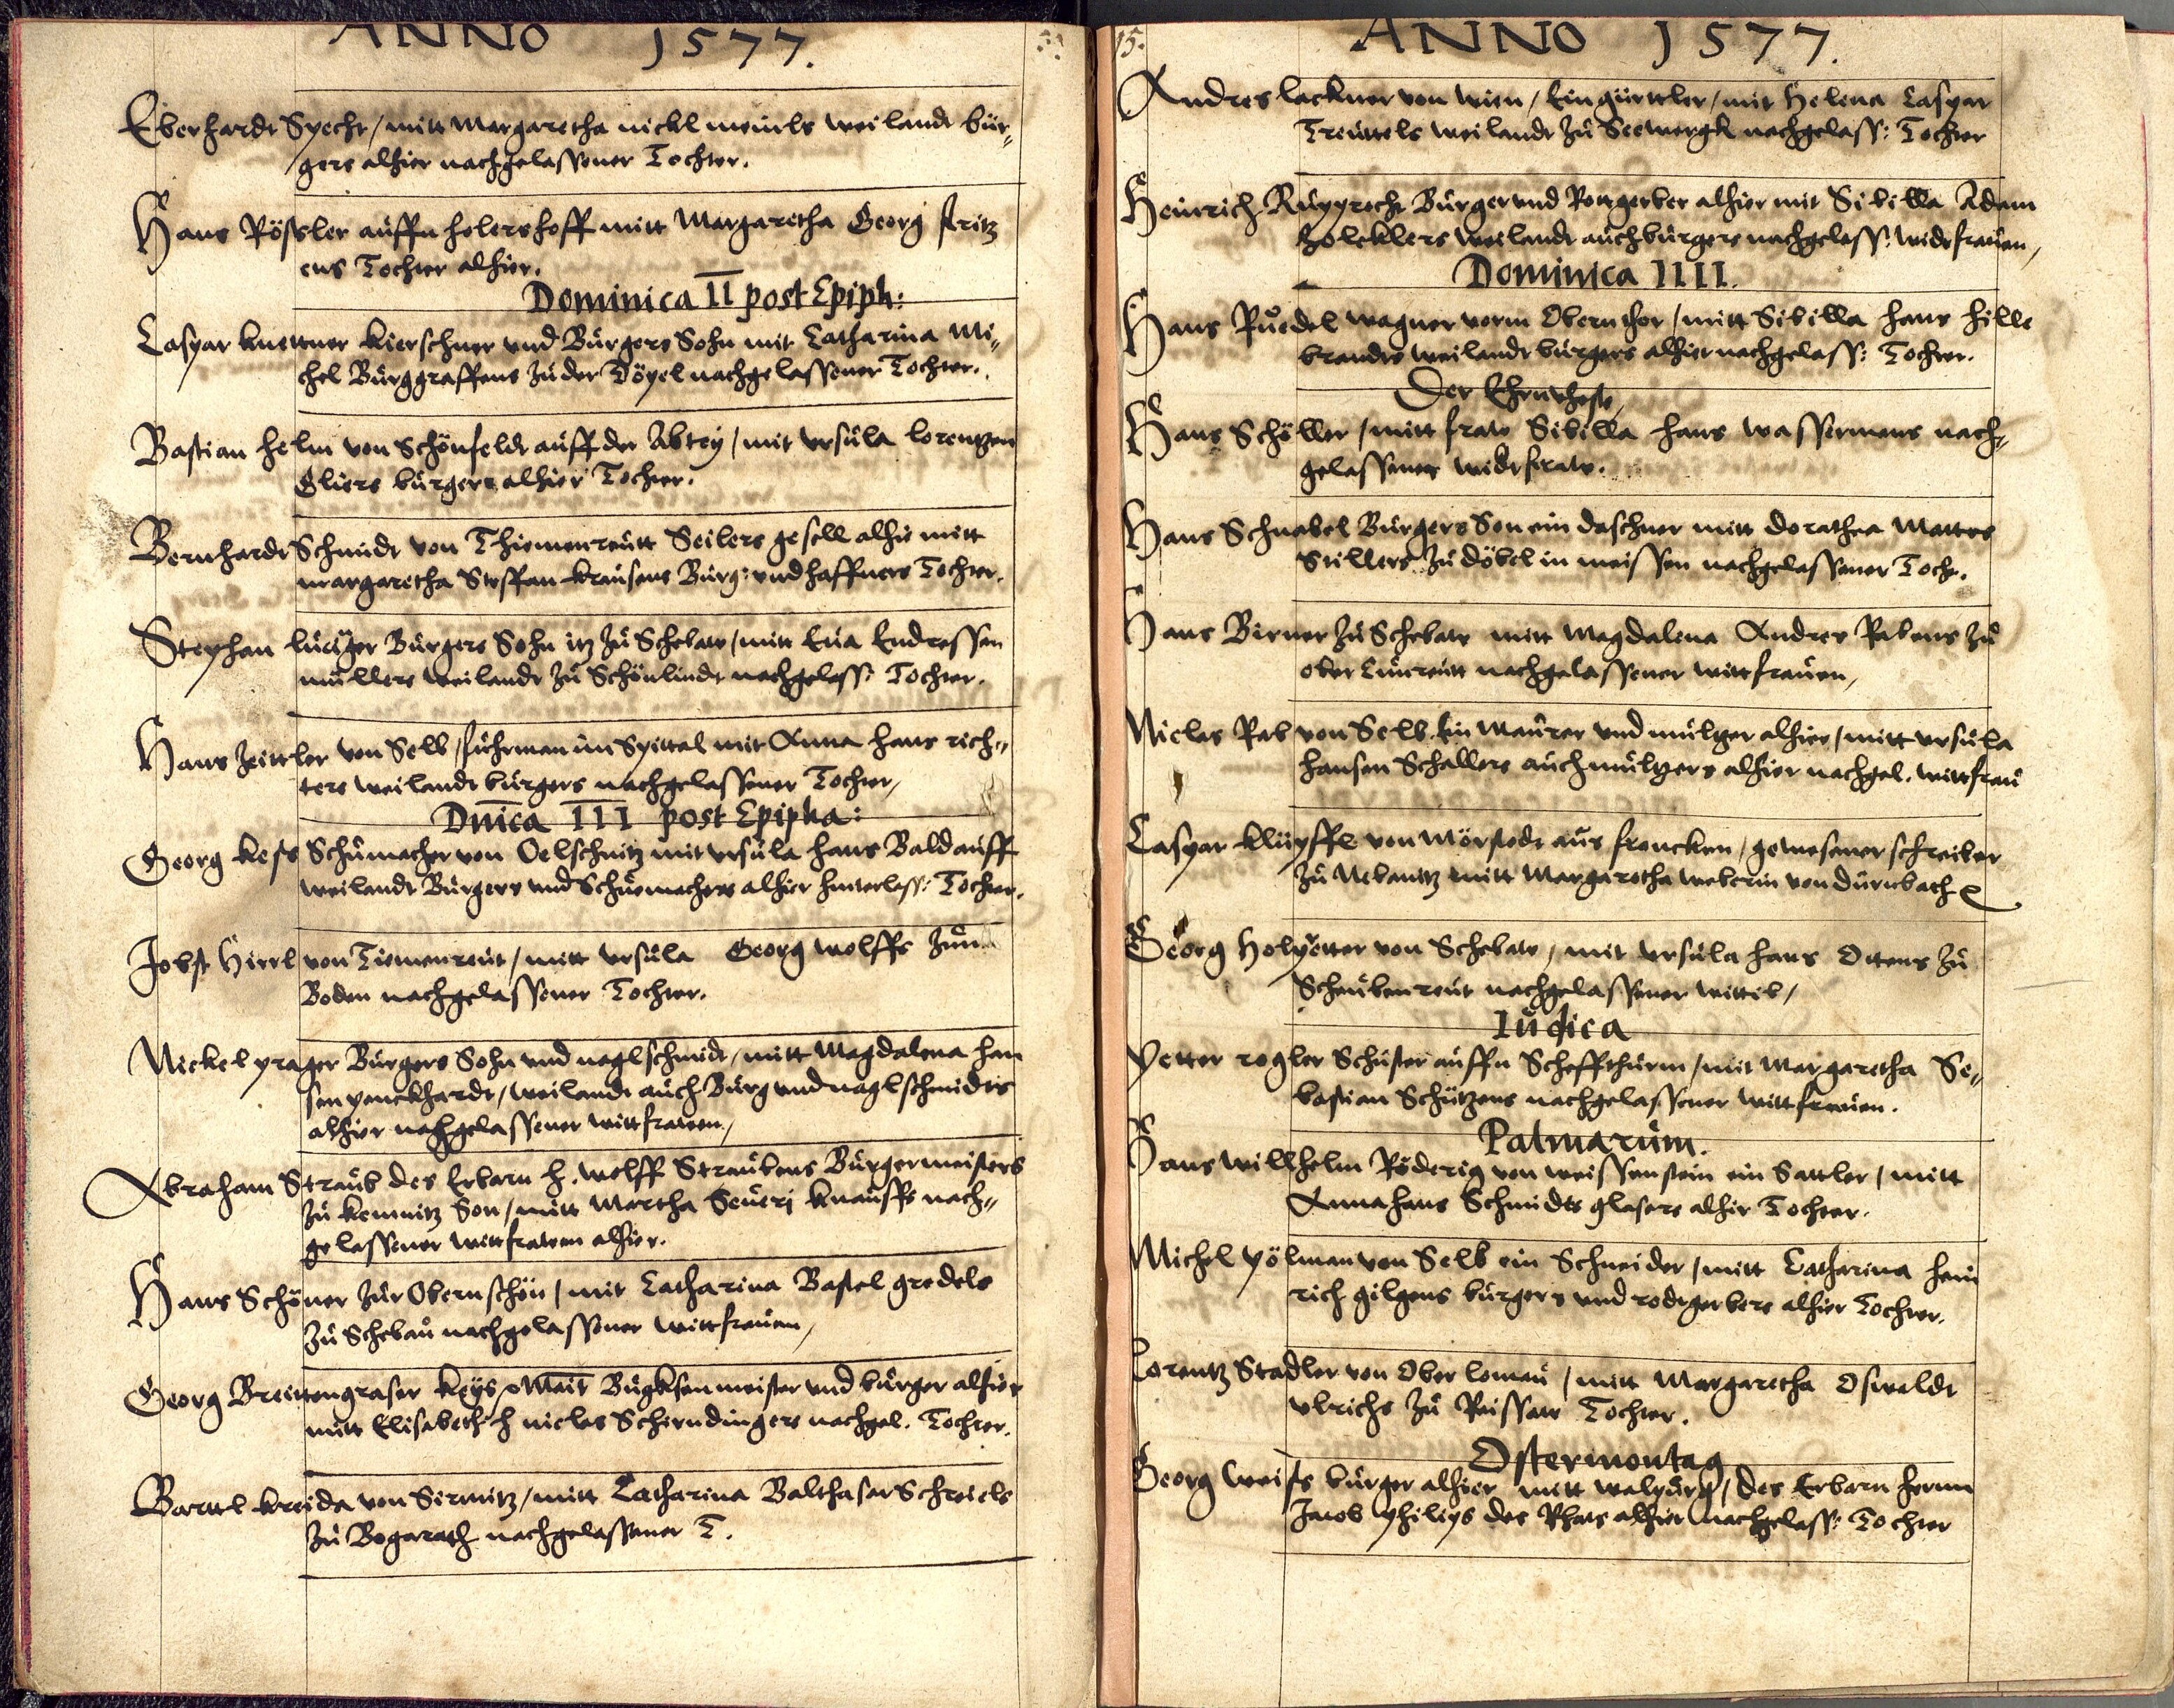 ANNO 1577.
Eberhardt Specht / mitt Margaretha nickl meinls weilandt bür-
gers alhier nachgelassener Tochter.
Hans Rössler auffn holershoff mitt Margaretha Georg stritz
ens Tochter alhier.
Dominica II post Epiph:
Caspar knettner Kierschner und Bürgers Sohn mit Catharina Mi-
chel Burggraffens zu der Döpel nachgelassener Tochter.
Bastian helm von Schönfeldt auff der Abtey / mit ursula lorentzen
Gliers bürgers alhier Tochter.
Bernhardt Schmidt von Thiemenreutt Seilers gesell alhie mitt
margaretha Steffan krausens Burg: und haffners Tochter.
Stephan Burgers Sohn itz zu Schebaw / mitt Eua Endressen
müllers weilandt zu Schönlindt nachgelass: Tochter.
Hans zeittler von Selb / fuhrman im Spittal mit Anna hans rich-
ters weilandt bürgers nachgelassener Tochter /
Dnica III post Epipha:
Georg kess Schumacher von Oelschnitz mit ursula hans Baldauff
weilandt Bürgers und Schuemachers alhier hinterlass: Tochter.
Jobst Hierl von Tiemenreut / mitt ursula Georg wolffs zun
Boden nachgelassener Tochter.
Nickel prager Bürgers Sohn und naglschmidt / mitt Magdalena han
sen penckhardt / weilandt auch Burg und naglschmidts
alhier nachgelassener wittfrawen /
Abraham Straub des Erbarn h. wolff Straubens Bürgermeisters
zu kemnitz Son / mitt Martha Seueri knauffs nach-
gelassener wittfrawen alhier.
Hans Schöner zur Obern schön / mit Catharina Bastel gredels
zu Schebau nachgelassener wittfrauen /
Georg Breittengraser Keys Mait Bugksenmeister und bürger alhier
mitt Elisabeth h niclas Schirndingers nachgel. Tochter.
Barttl kreida von Sirmitz / mitt Catharina Balthasar Schreiels
zu Bograth nachgelassener T.
15.
ANNO 1577.
Andres lackner von wien / Ein gürttler / mit Helena Caspar
Treuttels weilandt zu nachgelass: Tochter
Heinrich Rupprecht Burger und Rottgerber alhier mit Sibilla Adam
holeklers weilandt auch bürgers nachgelass: widtfrauen /
Dominica IIII.
Hans Ruedel wagner vorm Obernthor / mitt Sibilla hans hille
brandts weilandt bürgers alhier nachgelass: Tochter.
Der Ehrnvheste
Hans Schöller / mitt fraw Sibilla hans wassermans nach-
gelassener widtfraw.
Hans Schnabel Bürgers Son ein daschner mitt dorathea Mattes
Stillers zu döbel in meissen nachgelassener Toch.
Hans Birner zu Schebaw mitt Magdalena Andres Rabens zu
ober nachgelassener wittfrauen /
Niclas Rab von Selb. ein Maurer und mulger alhier / mitt ursula
hansen Schallers auch mültzers alhier nachgel. wittfrau
Caspar klüpffl von Mörstedt aus francken / gewesener schreiber
zu Nebanitz mitt Margaretha weberin von durnbach
Georg Holpetter von Schebaw / mit ursula hans Ottens zu
Scheubenreut nachgelassener wittib /
Iudica
Petter rogler Schuster auffn Schiffthurm / mit Margaretha Se-
bastian Schützens nachgelassener wittfrauen.
Palmarum.
Hans willhelm Röderig von weissenstein ein Sattler / mitt
Anna hans Schmidts glasers alhir Tochter.
Michel pölman von Selb ein Schneider / mitt Catharina hein
rich gilgens bürgers und rodtgerbers alhier Tochter.
Lorentz Stadler von Ober lomau / mitt Margaretha Oswaldt
ulrichs zu Reissaw Tochter.
Ostermontag
Georg Weiss bürger alhier mitt walpurg / des Erbarn herrn
Jacob philips des Rhats alhier nachgelass: Tochter